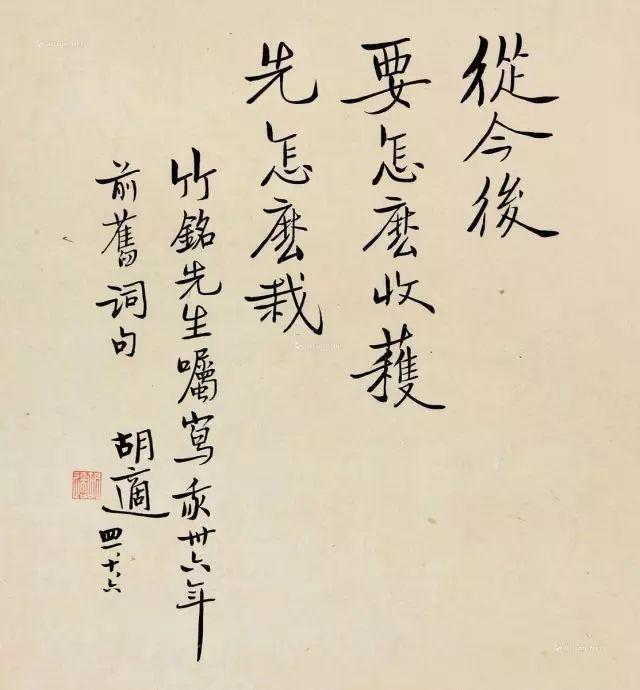 從今後
要怎麽收穫
先怎麽栽
竹銘先生囑寫我卅六年
前舊詞句
胡適
四、十、六